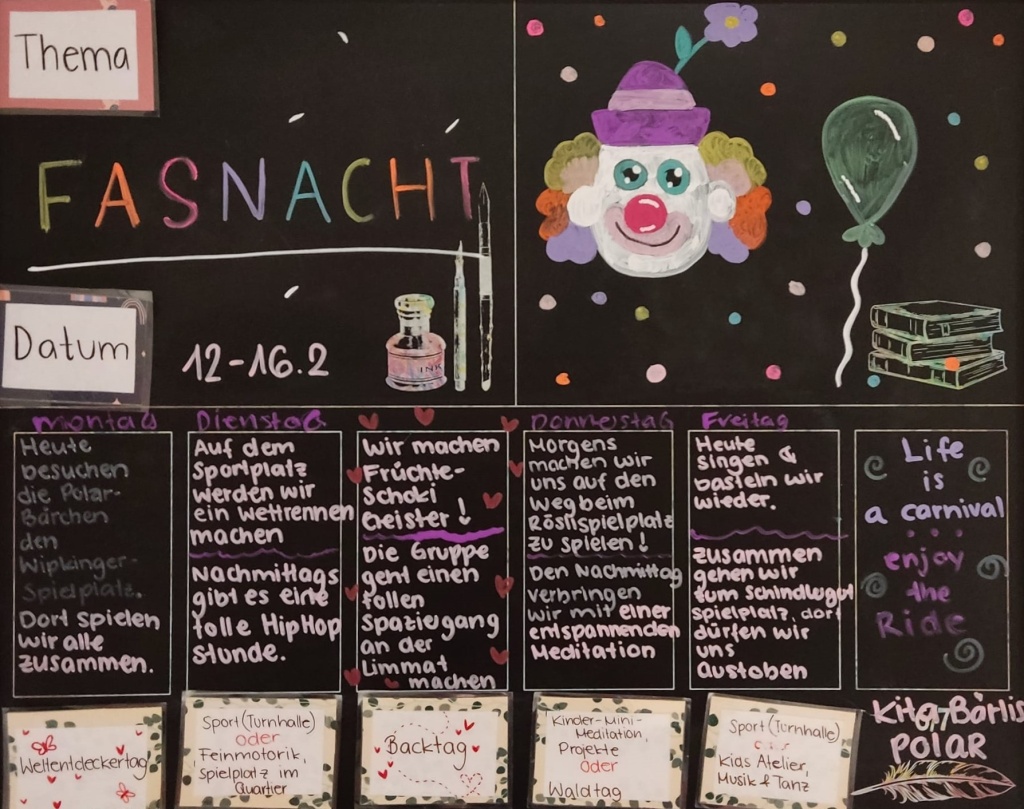 Thema
FASNACHT
INK
Datum
12-16.2
Montag
Heute
besuchen
die Polar-
Bärchen
den
Wipkinger-
Spielplatz.
Dort spielen
wir alle
zusammen.
Weltentdeckertag
Dienstag
Auf dem
Sportplatz
werden wir
ein Wettrennen
machen
Nachmittags
gibt es eine
tolle HipHop
Stunde.
Sport (Turnhalle)
oder
Feinmotorik,
Spielplatz im
Quartier
Wir machen
Früchte-
Schoki
Geister!
Die Gruppe
geht einen
tollen
Spaziergang
an der
Limmat
machen
Backtag
Donnerstag
Morgens
machen wir
uns auf den
Weg beim
Röslispielplatz
zu spielen!
Den Nachmittag
verbringen
wir mit einer
entspannenden
Meditation
Kinder-Mini-
Meditation,
Projekte
Oder
Waldtag
Freitag
Heute
singen &
basteln wir
wieder.
zusammen
gehen wir
zum Schindlergut
spielplatz, dort
dürfen wir
uns
Austoben
Sport (Turnhalle)
Kids Atelier,
Musik & Tanz
Life
is
a carnival
enjoy
the
Ride
Kita Börlis
POLAR